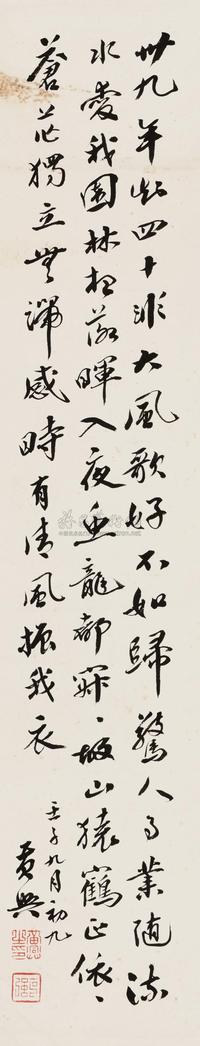 卅九年知四十非大風歌好不如歸驚人事業隨流
水愛我園林想落暉入夜魚龍都寂、故山猿鶴正依、
蒼茫獨立無端感時有清風振我衣
壬子九月初九
黃興